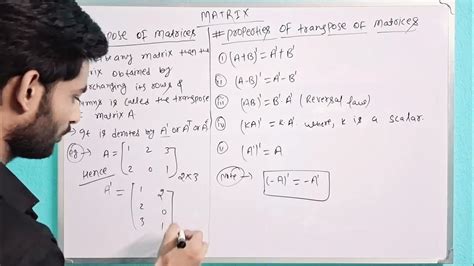 MATRIX
pose of Matrices
be any matrix then the
rix obtained by
erchanging its rows &
umns is called the transpose
matrix A.
→ It is denoted by A' or Aᵀ or Aᵗ
Eg → A = [1 2 3
2 0 1] 2×3
Hence
A' = [1 2
2 0
3 1]
# properties of transpose of Matrices
i) (A+B)' = A'+B'
ii) (A-B)' = A'-B'
iii) (AB)' = B'·A' (Reversal law)
iv) (KA)' = KA' where, K is a scalar.
v) (A')' = A
Note → (-A)' = -A'